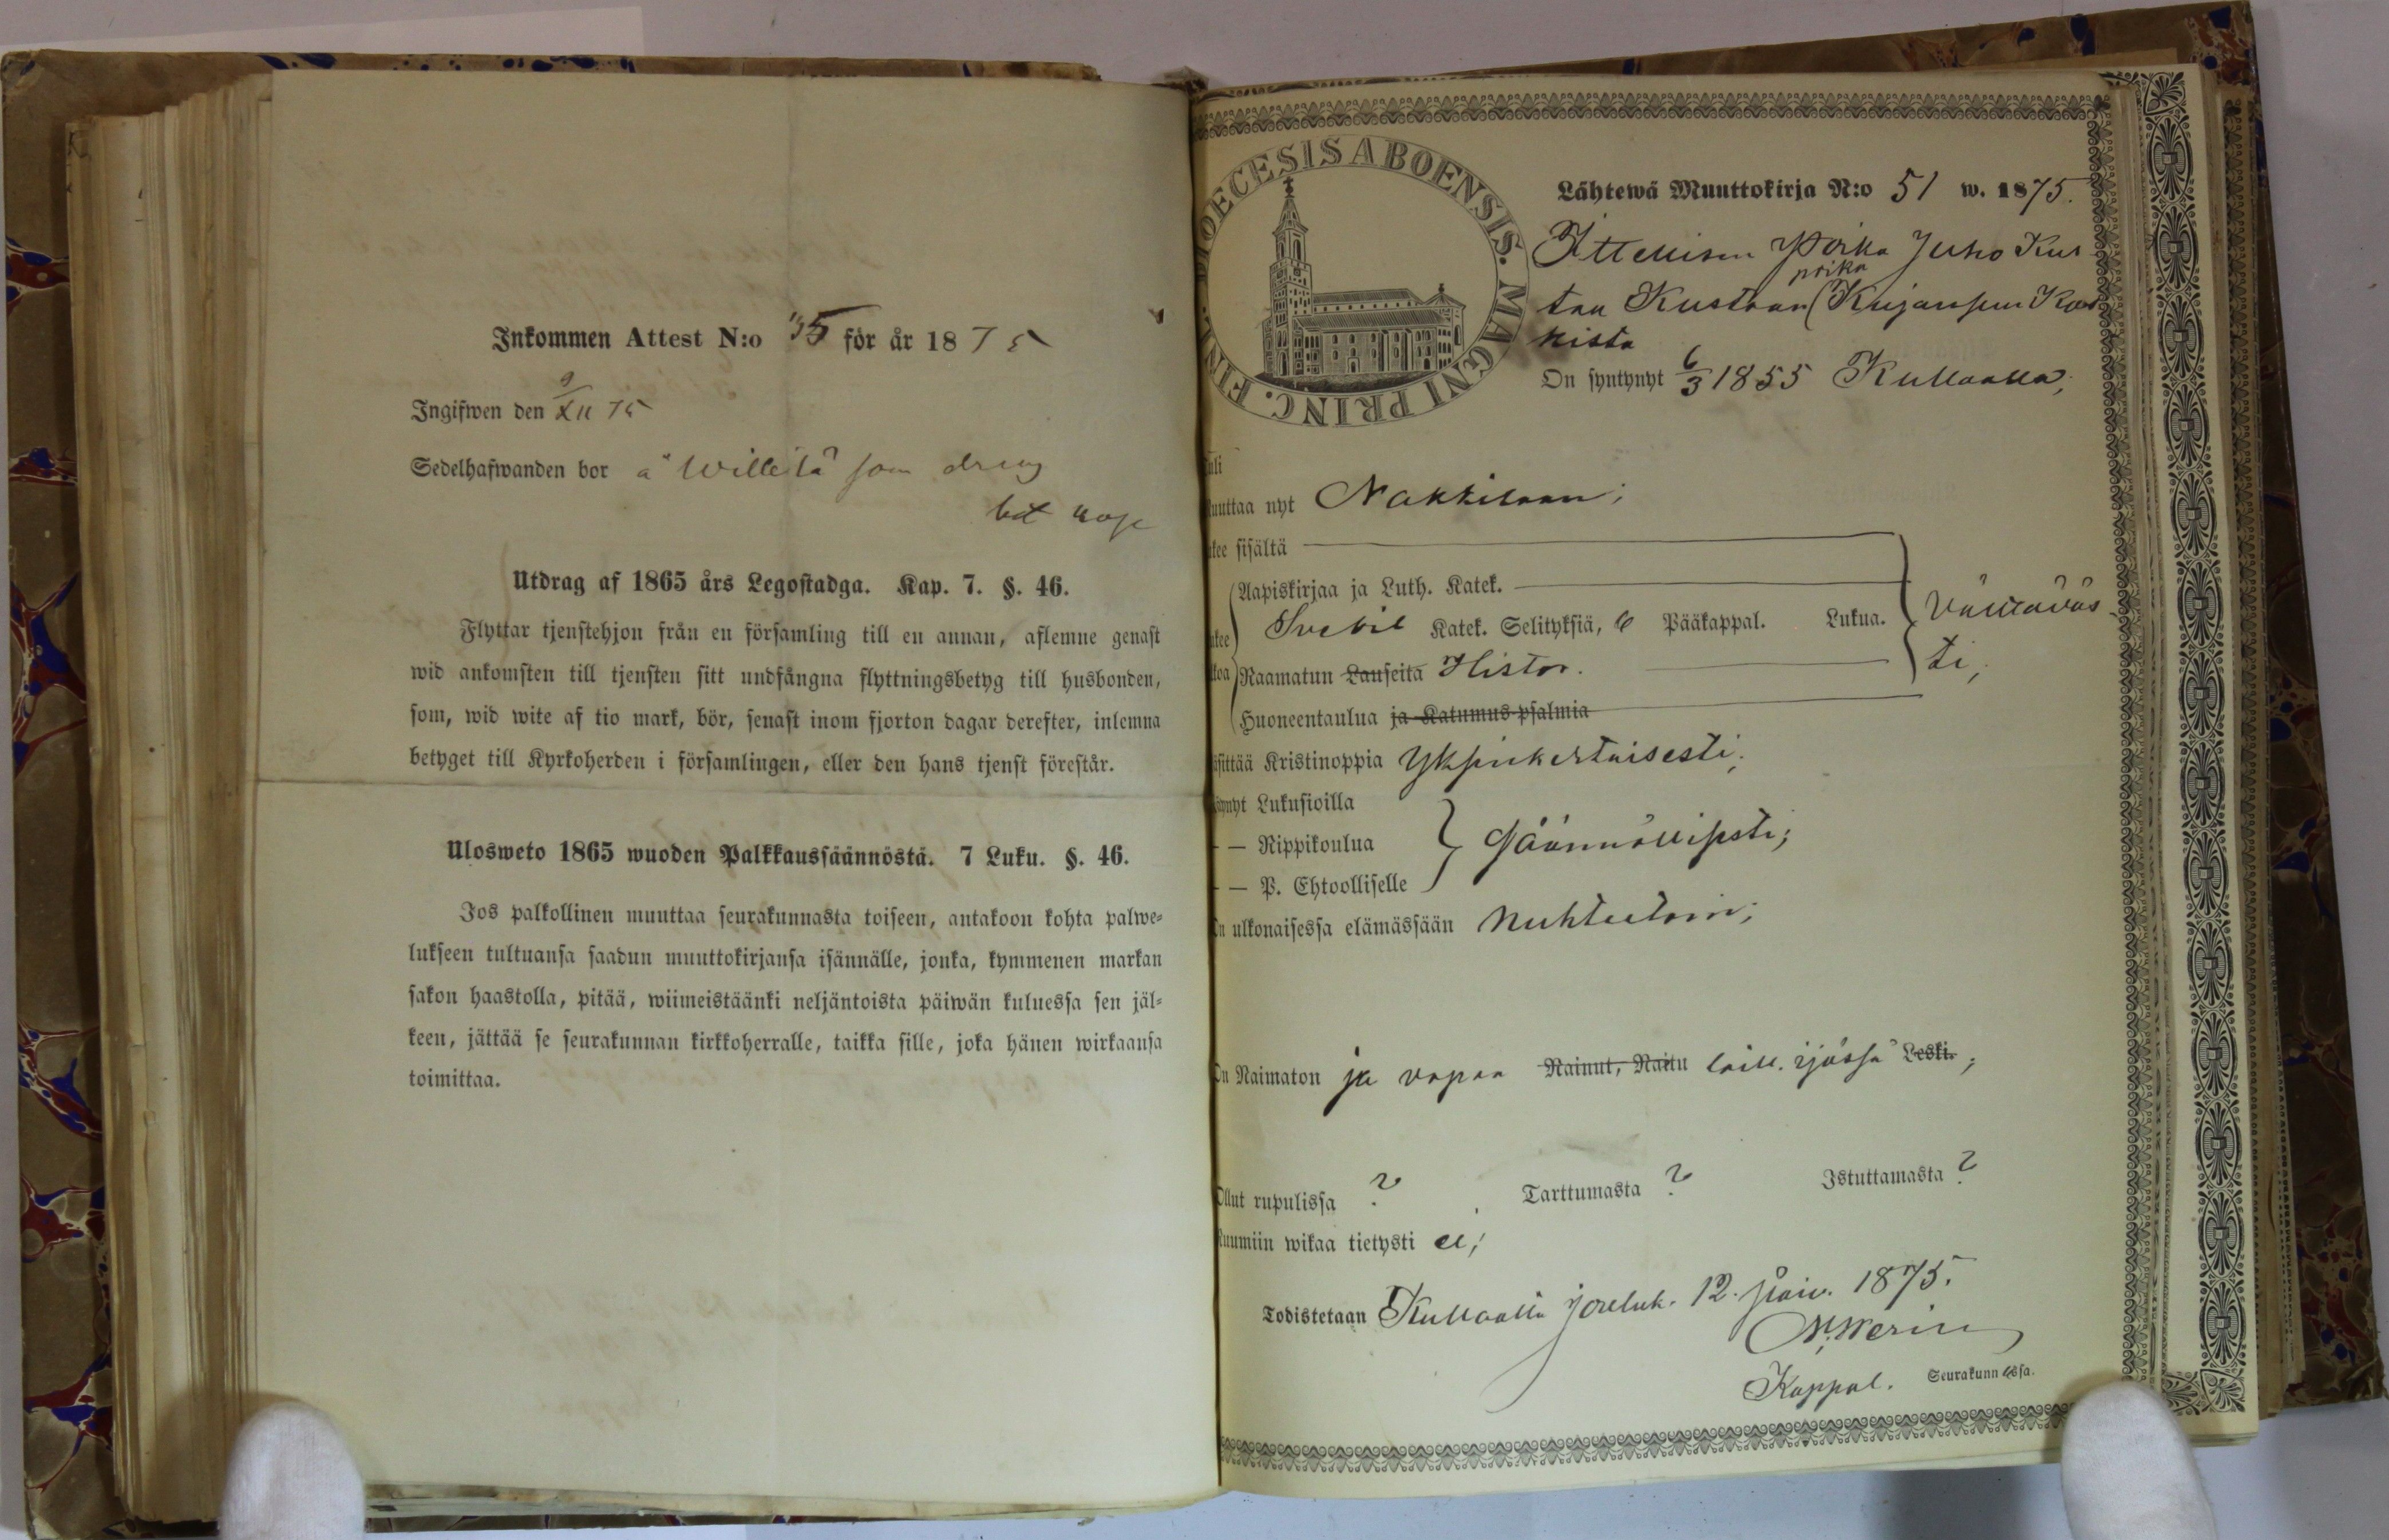 Inkommen Attest N:o 35 för år 1875
Ingifwen den 9/XII 75
Sedelhafwanden bor å Willilä som dreng
Utdrag af 1865 års Legostadga. Kap. 7. §. 46.
Flyttar tjenstehjon från en församling till en annan, aflemne genast
wid ankomsten till tjensten sitt undfångna flyttningsbetyg till husbonden,
som, wid wite af tio mark, bör, senast inom fjorton dagar derefter, inlemna
betyget till Kyrkoherden i församlingen, eller den hans tjenst förestår.
Ulosweto 1865 wuoden Palkkaussäännöstä. 7 Luku. §. 46.
Jos palkollinen muuttaa seurakunnasta toiseen, antakoon kohta palwe-
lukseen tultuansa saadun muuttokirjansa isännälle, jonka, kymmenen markan
sakon haastolla, pitää, wiimeistäänki neljäntoista päiwän kuluessa sen jäl-
keen, jättää se seurakunnan kirkkoherralle, taikka sille, joka hänen wirkaansa
toimittaa.
DIOECESIS ABOENSIS. MAGNI PRINC. FINL.
Lähtewä Muuttokirja N:o 51 w. 1875.
Ittellisen Poika Juho Kus
taa Kustaan poika
kista
On syntynyt 6/3 1855 Kullaalla;
uli
uuttaa nyt Nakkilaan;
kee sisältä
Aapiskirjaa ja Luth. Katek.
Svebil Katek. Selityksiä, 6 Pääkappal. Lukua. välttäväs
Raamatun Lauseita Histor. ti;
Huoneentaulua ja Katumus-psalmia
sittää Kristinoppia Yksinkertaisesti;
ynyt Lukusioilla
— Rippikoulua säännöllisesti;
— P. Ehtoolliselle
On ulkonaisessa elämässään nuhteetoin;
On Naimaton ja vapaa Nainut, Naitu laill. ijässä Leski;
Ollut rupulissa ? Tarttumasta ? Istuttamasta ?
Ruumiin wikaa tietysti ei;
Todistetaan Kullaalla Jouluk. 12. päiv. 1875.
Kappal. Seurakunnassa.